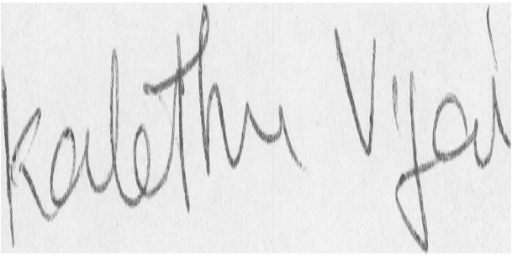 Kalethu Vijai